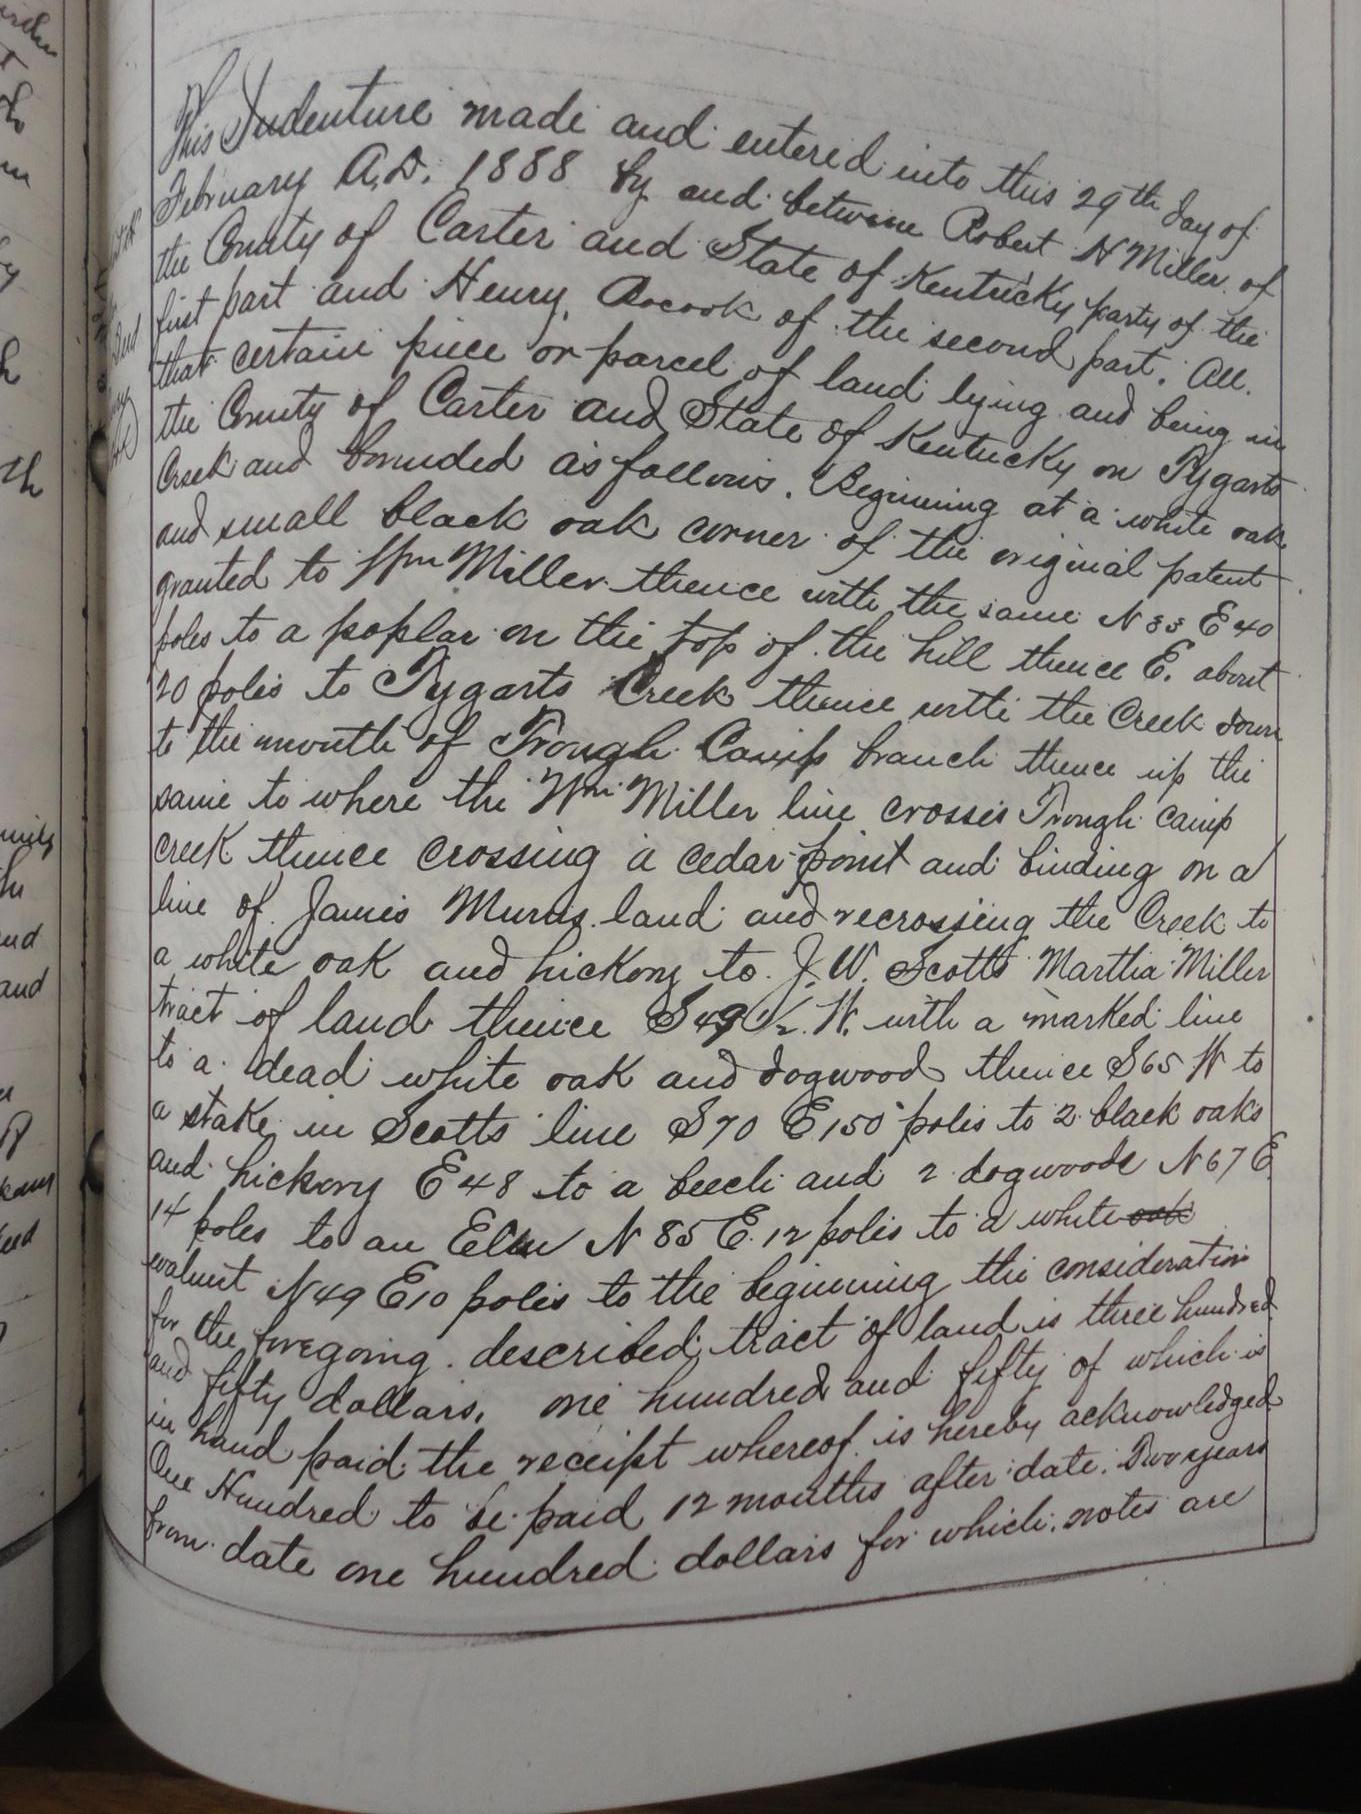 This Indenture made and entered into this 29th day of
February A.D. 1888 by and between Robert H Miller of
the County of Carter and State of Kentucky party of the
first part and Henry Bocook of the second part. All.
that certain piece or parcel of land lying and being in
the County of Carter and State of Kentucky on Tygarts
Creek and bounded as follows. Beginning at a white oak
and small black oak corner of the original patent
granted to Wm Miller thence with the same N 33 E 40
poles to a poplar on the top of the hill thence E. about
20 poles to Tygarts Creek thence with the Creek down
to the mouth of Trough Camp branch thence up the
same to where the Wm Miller line crosses Trough Camp
creek thence crossing a cedar point and binding on a
line of James land and recrossing the Creek to
a white oak and hickory to J. W. Scotts Martha Miller
tract of land thence S 49 1/2 W. with a marked line
to a dead white oak and dogwood thence S 65 W to
a stake in Scotts line S 70 E 150 poles to 2 black oaks
and hickory E 48 to a beech and 2 dogwoods N 67 E
14 poles to an Elm N 85 E. 12 poles to a white oak
walnut N 49 E 10 poles to the beginning the consideration
for the foregoing described tract of land is three hundred
and fifty dollars, one hundred and fifty of which is
in hand paid the receipt whereof is hereby acknowledged
One Hundred to be paid 12 months after date. Two years
from date one hundred dollars for which notes are